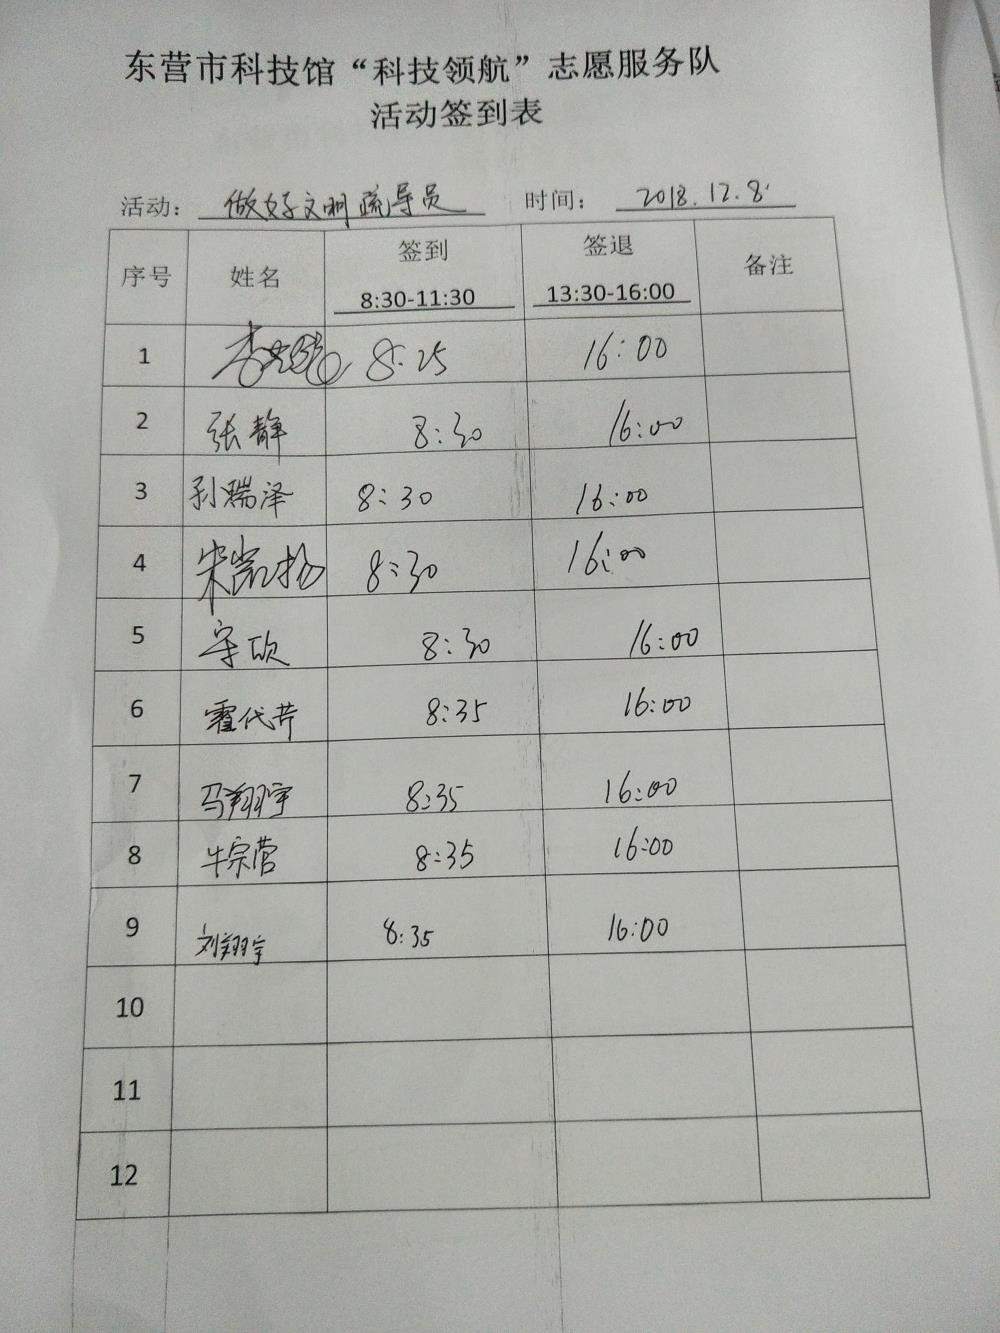 东营市科技馆“科技领航”志愿服务队
活动签到表
活动： 做好文明疏导员 时间： 2018.12.8
序号 姓名 签到 8:30-11:30 签退 13:30-16:00 备注
1 8:25 16:00
2 张静 8:30 16:00
3 孙瑞泽 8:30 16:00
4 宋凯扬 8:30 16:00
5 8:30 16:00
6 霍代芹 8:35 16:00
7 马翔宇 8:35 16:00
8 牛宗营 8:35 16:00
9 刘翔宇 8:35 16:00
10
11
12